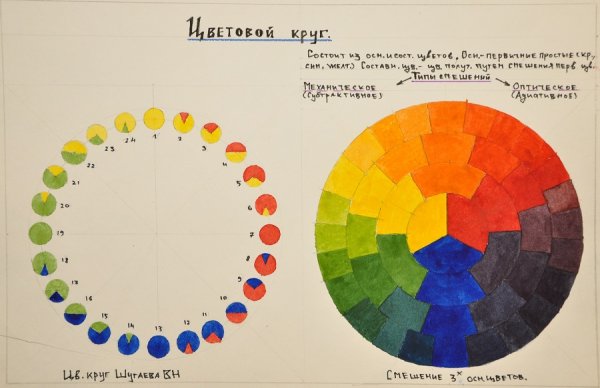 Цветовой круг.
Состоит из осн. и сост. цветов, Осн.- первичные простые (кр.,
син., желт.) Составн. цв. - цв. получ. путем смешения перв. цв.
Типы смешений
Механическое
(Субтрактивное)
Оптическое
(Адиативное)
1
2
3
4
5
6
7
8
9
10
11
12
13
14
15
16
18
19
20
21
22
23
24
Цв. круг Шугаева ВН
Смешение 3х осн. цветов.